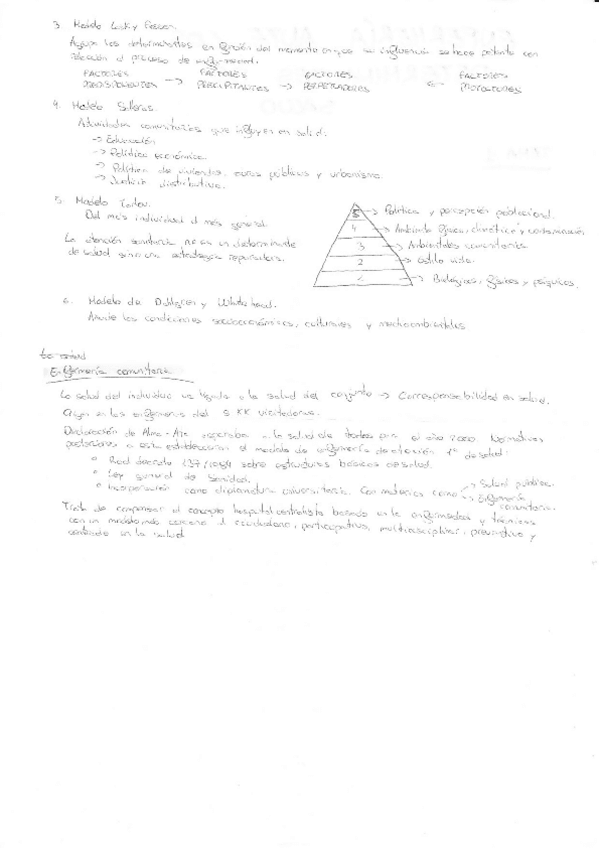 3. Modelo y
Agrupa los determinantes en función del momento en que su influencia se hace patente con
relación al proceso de enfermedad.
FACTORES PREDISPONENTES → FACTORES PRECIPITANTES → FACTORES PERPETUADORES ← FACTORES PROTECTORES
4. Modelo
Actividades comunitarias que influyen en salud:
→ Educación
→ Política económica.
→ Política de viviendas, obras públicas y urbanismo.
→ Justicia distributiva.
5. Modelo
Del más individual al más general.
La atención sanitaria no es un determinante
de salud sino una estrategia reparadora.
5 → Política y percepción poblacional.
4 → Ambiente físico, climático y contaminación
3 → Ambientales comunitarios
2 → estilo vida.
→ Biológicos, físicos y psíquicos.
6. Modelo de Dahlgren y Whitehead.
Añade las condiciones socioeconómicas, culturales y medioambientales
Enfermería comunitaria
La salud del individuo va ligada a la salud del conjunto → Corresponsabilidad en salud.
en las enfermeras del S. XX visitadoras.
Declaración de Alma-Ata a la salud de todos para el año 2000. Normativas
posteriores a esta establecieron el modelo de enfermería de atención 1ª de salud:
o Real decreto 137/1984 sobre estructuras básicas de salud.
o Ley general de Sanidad.
o Incorporación como diplomatura universitaria. Con materias como → Salud pública.
→ Enfermería comunitaria.
Trata de compensar el concepto hospitalcentralista basado en la enfermedad y técnicas
con un modelo más cercano al ciudadano, participativo, multidisciplinar, preventivo y
centrado en la salud